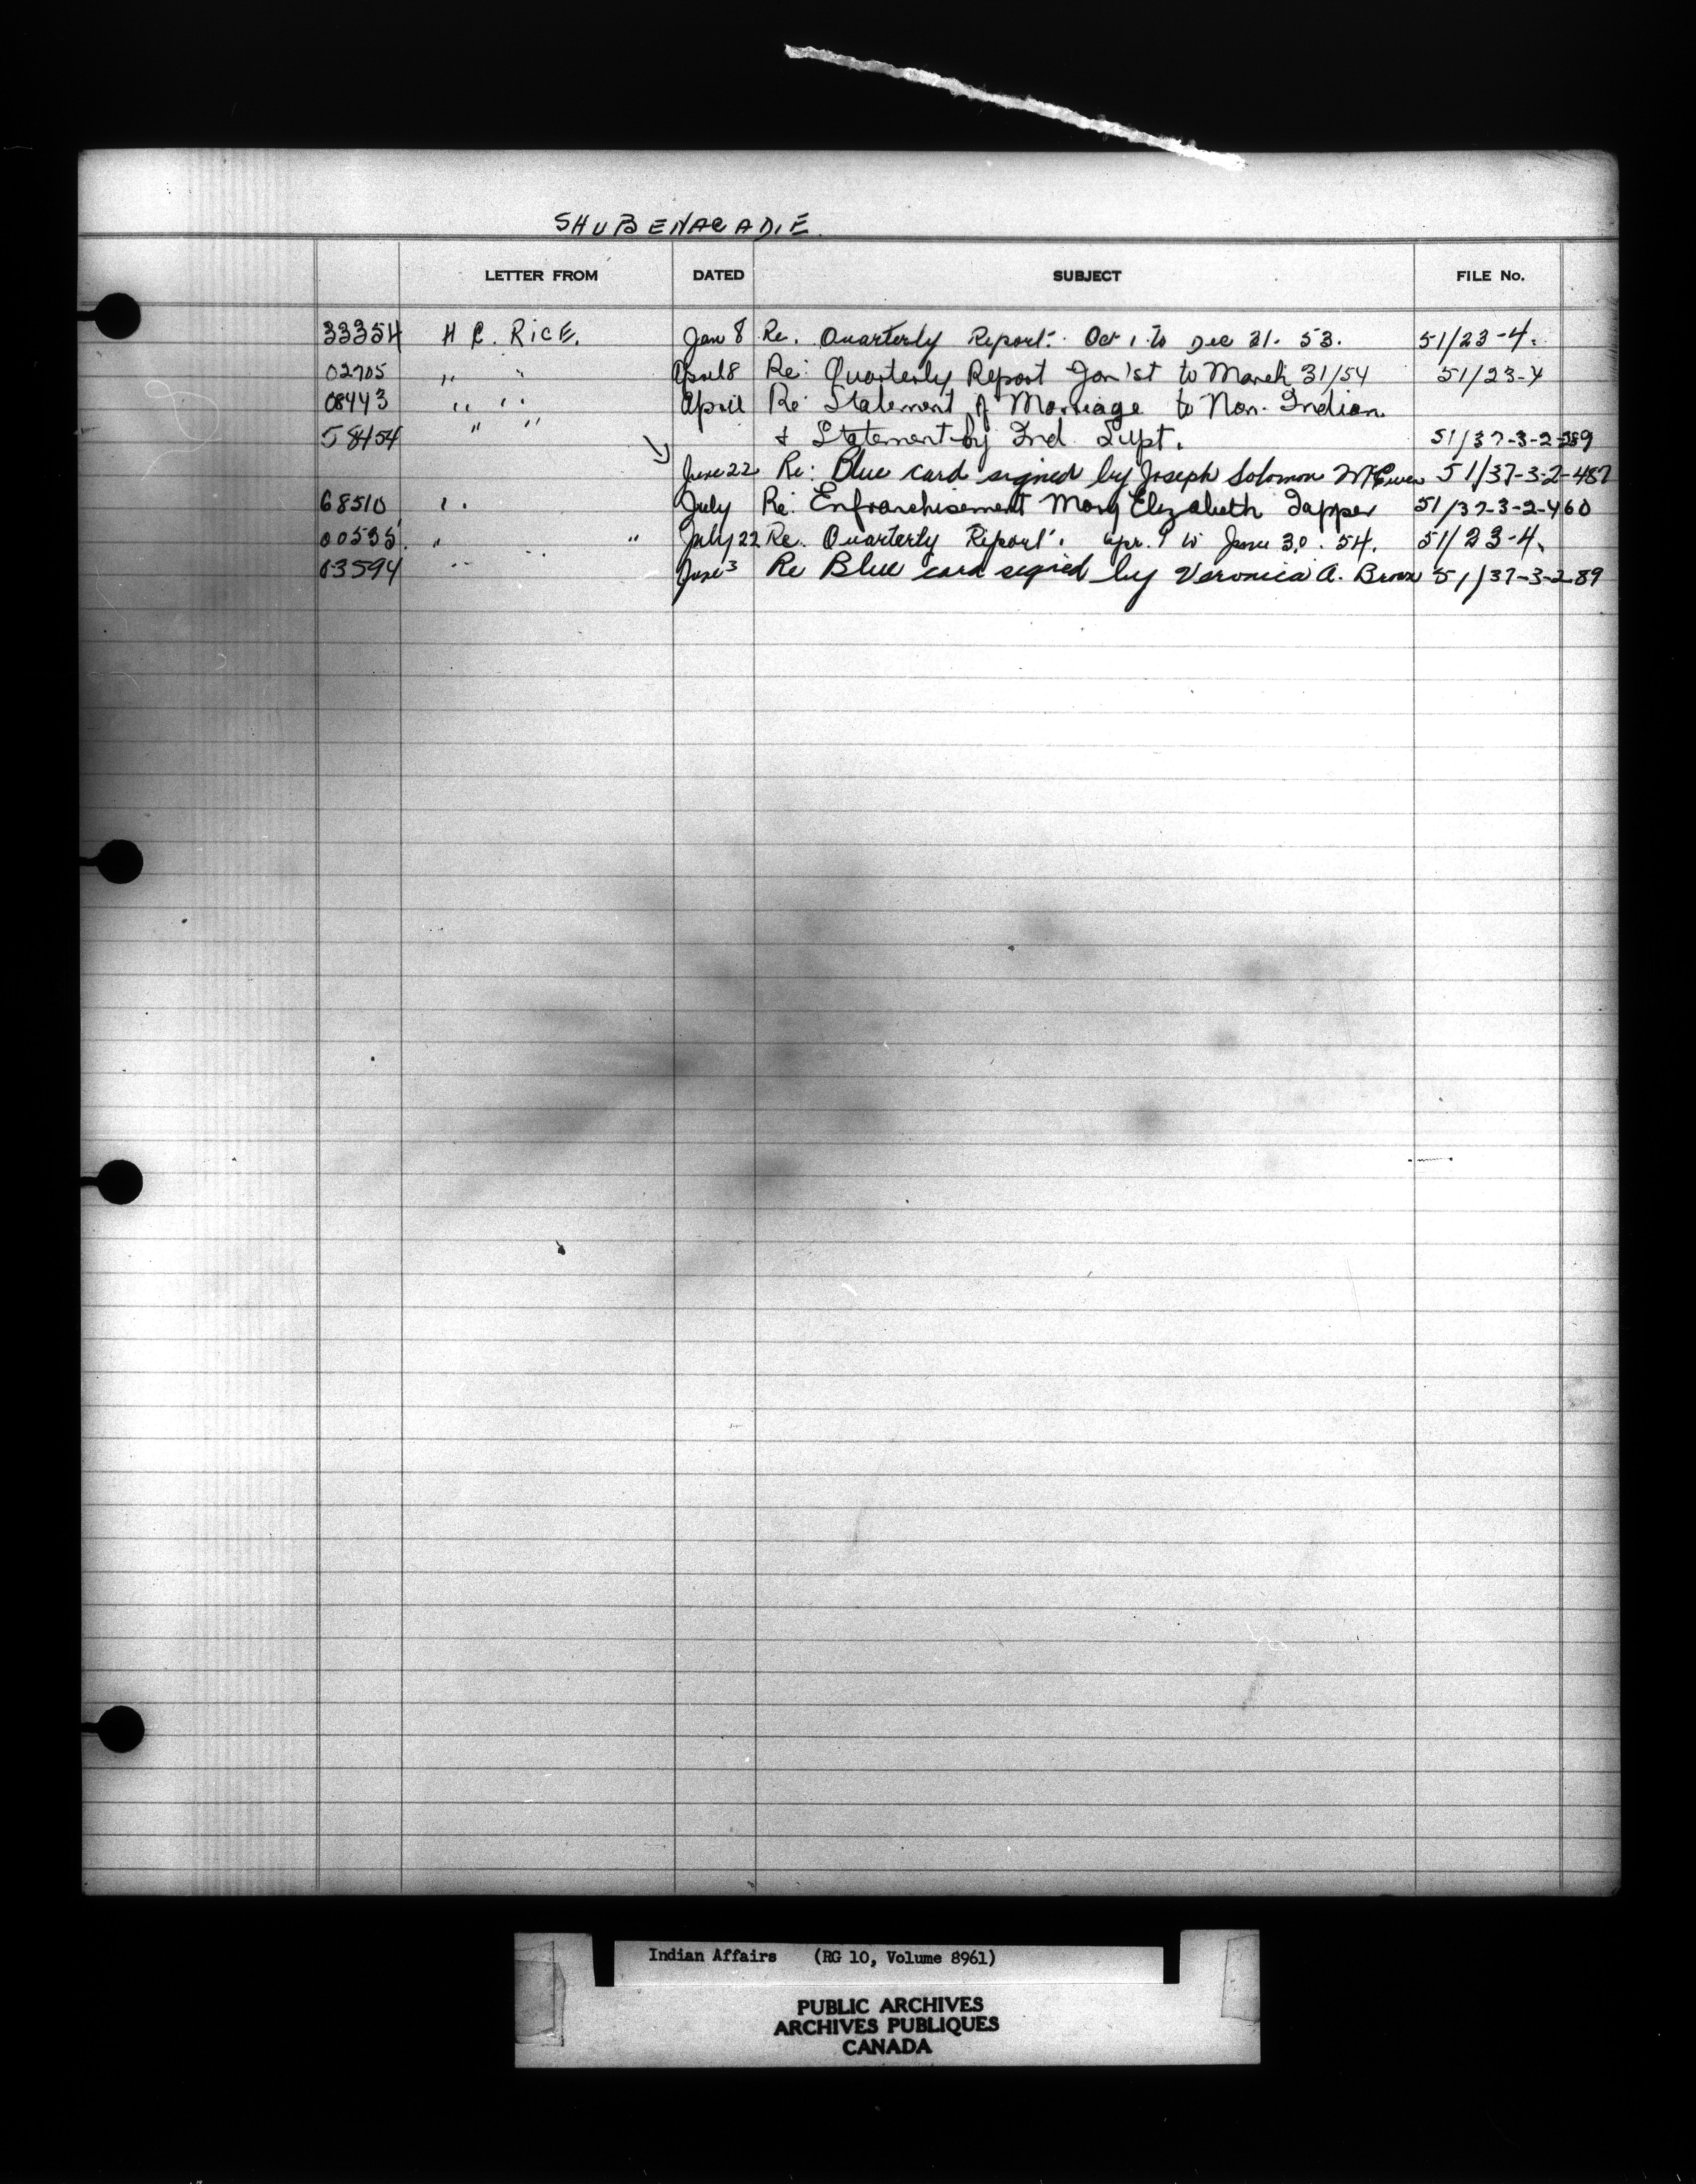 SHUBENACADIE
LETTER FROM DATED SUBJECT FILE No.
33354 H C. RICE. Jan 8 Re. Quarterly Report. Oct 1. to Dec 31. 53. 51/23-4.
02705 " " April 8 Re: Quarterly Report Jan 1st to March 31/54 51/23-4
08443 " " April Re Statement of Marriage to Non-Indian
58454 " " & Statement by Ind. Supt. 51/37-3-2-289
June 22 Re: Blue card signed by Joseph Solomon McEwen 51/37-3-2-487
68510 " July Re: Enfranchisement Mary Elizabeth Tapper 51/37-3-2-460
00535 " " July 22 Re. Quarterly Report. Apr. 1 to June 30. 54. 51/23-4.
03594 " June 3 Re Blue card signed by Veronica A. Brown 51/37-3-2-89
Indian Affairs (RG 10, Volume 8961)
PUBLIC ARCHIVES
ARCHIVES PUBLIQUES
CANADA